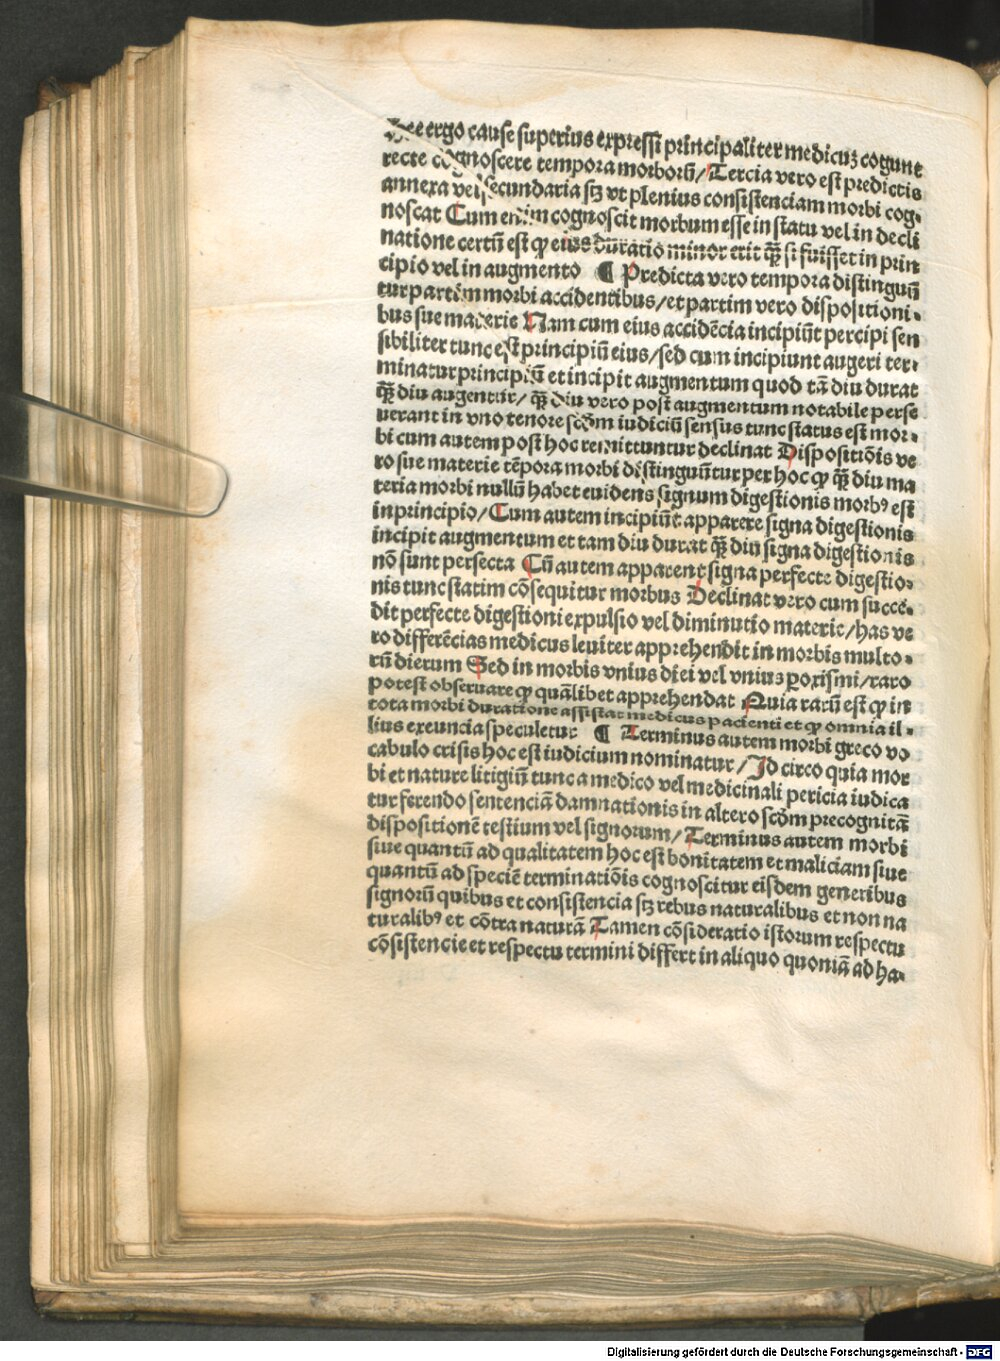 Hee ergo cause superius expressi principaliter medicuz cogunt
recte cognoscere tempora morborū/ Tercia vero est predictis
annexa vel secundaria sꝫ vt plenius consistenciam morbi cog-
noscat Cum enim cognoscit morbum esse in statu vel in decli
natione certū est ꝙ eius duratio minor erit ꝙ̄ si fuisset in prin
cipio vel in augmento ¶ Predicta vero tempora distinguū
tur partim morbi accidentibus/ et partim vero disposicioni-
bus sue materie Nam cum eius accidēcia incipiūt percipi sen
sibiliter tunc est principiū eius/ sed cum incipiunt augeri ter-
minatur principiū et incipit augmentum quod tā diu durat
ꝙ̄ diu augentur/ ꝙ̄ diu vero post augmentum notabile perse
uerant in vno tenore scd̄m iudiciū sensus tunc status est mor-
bi cum autem post hoc remittuntur declinat Dispositiōis ve
ro sue materie tēpora morbi distinguūtur per hoc ꝙ ꝙ̄ diu ma
teria morbi nullū habet euidens signum digestionis morbꝰ est
in principio/ Cum autem incipiūt apparere signa digestionis
incipit augmentum et tam diu durat ꝙ̄ diu signa digestionis
nō sunt perfecta Cū autem apparent signa perfecte digestio-
nis tunc statim cōsequitur morbus Declinat vero cum succe-
dit perfecte digestioni expulsio vel diminutio materie/ has ve
ro differēcias medicus leuiter apprehendit in morbis multo-
rū dierum Sed in morbis vnius diei vel vnius ꝑoxismi/ raro
potest obseruare ꝙ quālibet apprehendat Quia rarū est ꝙ in
tota morbi duratione assistat medicus pacienti et ꝙ omnia il-
lius exeuncia speculetur ¶ Terminus autem morbi greco vo
cabulo crisis hoc est iudicium nominatur/ Id circo quia mor
bi et nature litigiū tunc a medico vel medicinali pericia iudica
tur ferendo sentenciā damnationis in altero scd̄m precognitā
dispositionē testium vel signorum/ Terminus autem morbi
siue quantū ad qualitatem hoc est bonitatem et maliciam siue
quantū ad speciē terminatiōis cognoscitur eisdem generibus
signorū quibus et consistencia sꝫ rebus naturalibus et non na
turalibꝰ et cōtra naturā Tamen cōsideratio istorum respectu
cōsistencie et respectu termini differt in aliquo quoniā ad ha-
Digitalisierung gefördert durch die Deutsche Forschungsgemeinschaft - DFG